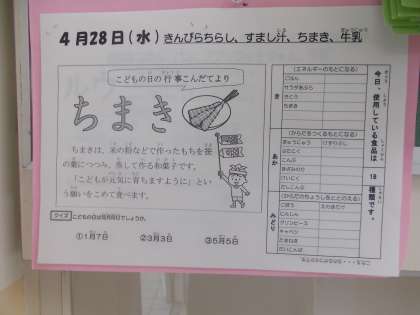 4月28日(水) きんぴらちらし、すまし汁、ちまき、牛乳
こどもの日の行事こんだてより
ちまき
ちまきは、米の粉などで作ったもちを笹
の葉につつみ、蒸して作る和菓子です。
「こどもが元気に育ちますように」とい
う願いをこめて食べます。
クイズ こどもの日は何月何日でしょうか。
①1月7日 ②3月3日 ③5月5日
今日、使用している食品は
18
種類です。
き
(エネルギーのもとになる)
ごはん
さとう
ちまき
あか
(からだをつくるもとになる)
ぎゅうにゅう
こんぶ
とりにく
だいこんぶ
みどり
(からだのちょうしをととのえる)
ごぼう
にんじん
グリンピース
キャベツ
たまねぎ
だいこん